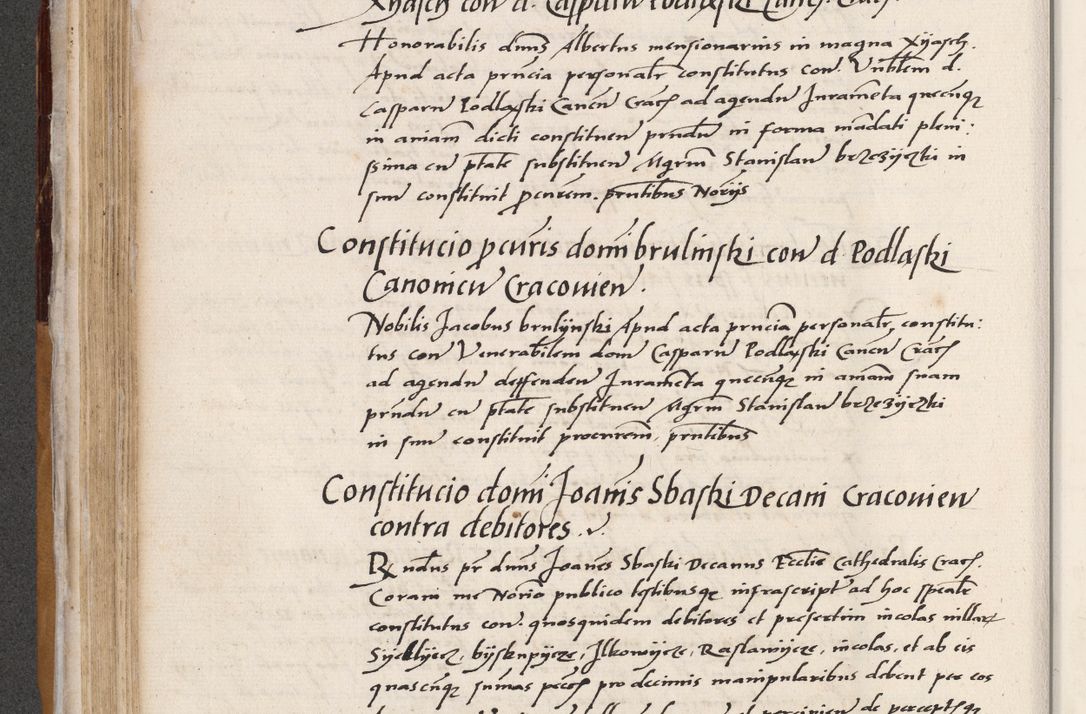 Xyasch con d. Casparu Podlaski Canc. Crac.
Honorabilis dnus Albertus mensionarius in magna Xijasch.
Apud acta pruncia personalr constitutus con. Vnblem d.
Casparu Podlaski Canen Crac ad agendu Juramenta quecunq
in aniam dicti constituen prndu in forma mandati pleni:
ssima cu ptate substituen Mgrm Stanislau brzezijczki in
suu constituit pcurem. prntibus Norijs
Constitucio pcuris domi brulinski con d. Podlaski
Canonicu Cracouien.
Nobilis Jacobus brulijnski Apud acta pruncia personalr, constitu:
tus con Venerabilem dom Casparu Podlaski Canen Crac
ad agendu deffenden Juramenta quecunq in aniam suam
prndu cu ptate substituen Mgrm Stanislau brzezijczki
in suu constituit procurem, prntibus
Constitucio domi Joanis Sbaski Decani Cracouien
contra debitores.
Rndus pr dnus Joanes Sbaski Decanus Ecclie Cathedralis Crac.
Coram me Norio publico testibusq infrascript ad hoc spealr
constitutus con. quosquidem debitores et presertim incolas villar
bijskupijcze, Ilkowijcze, Raslawijcze, incolas, et ab eis
quascunq sumas pecc pro decimis manipularibus debent per eos